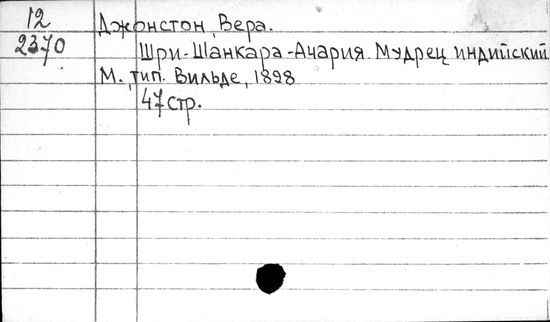 12
2370
Джонстон, Вера.
Шри-Шанкара-Ачария. Мудрец индийский
М. тип. Вильде, 1898
47 стр.